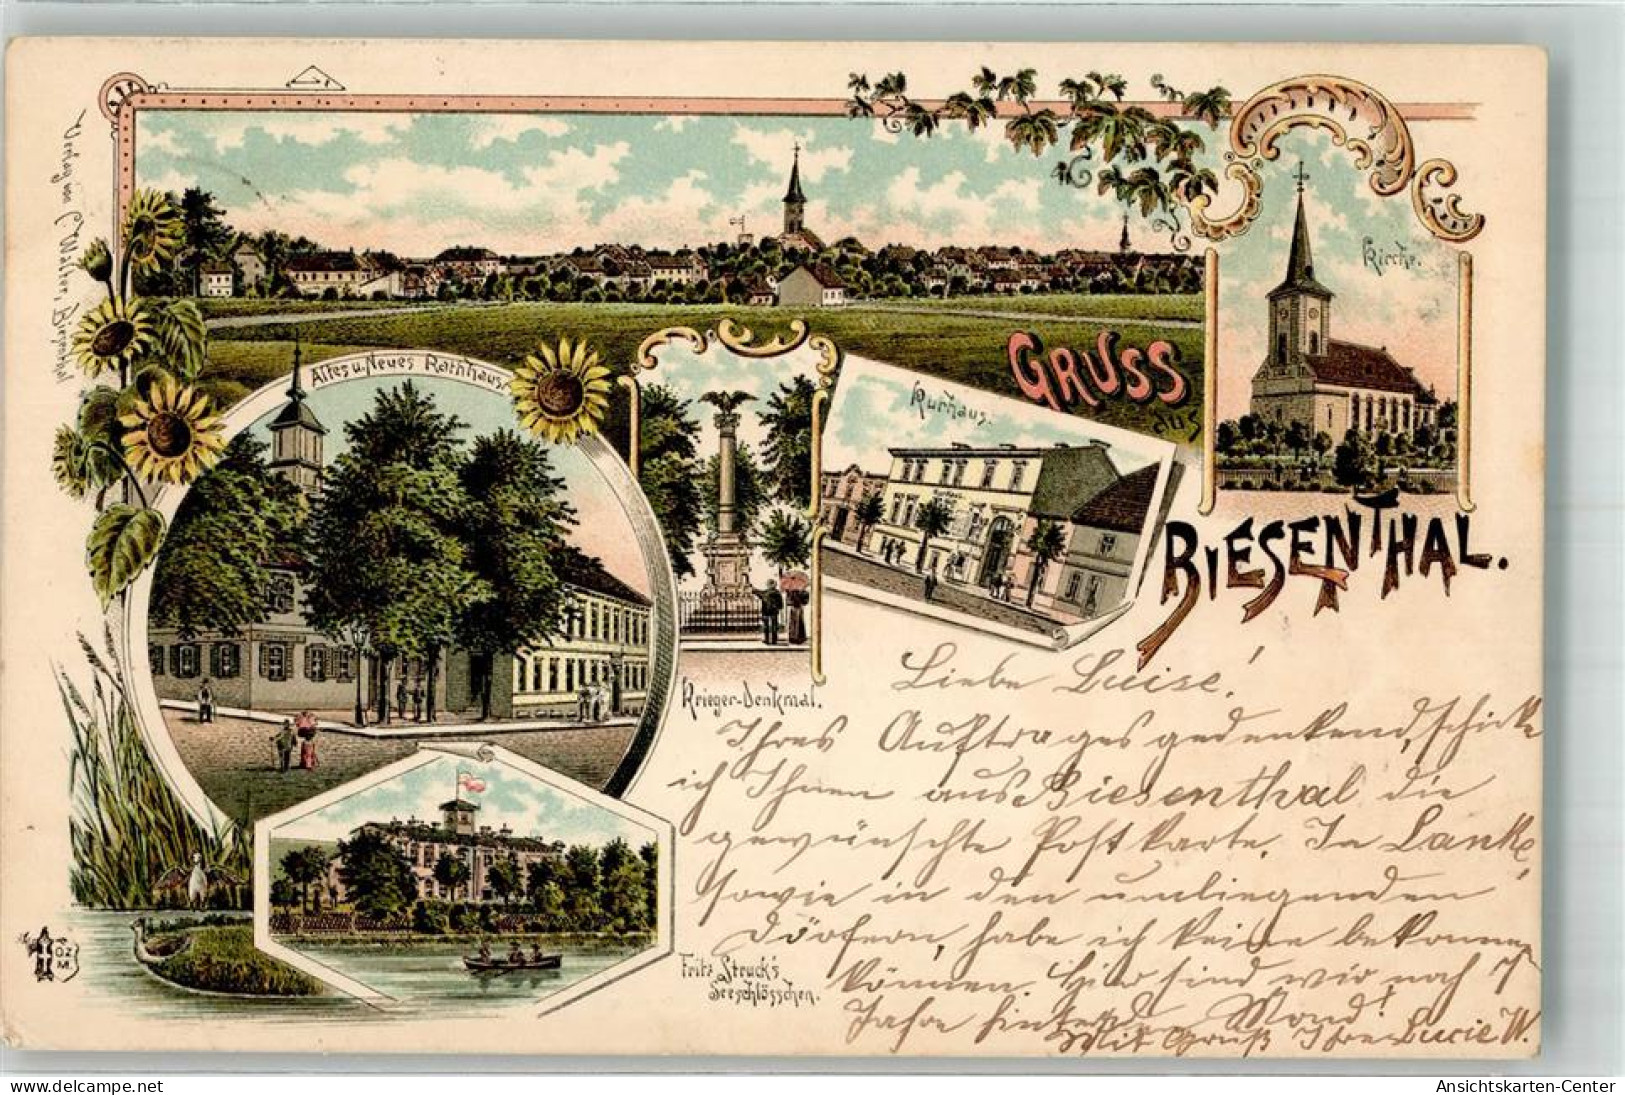 Verlag von C. Walter, Biesenthal
Altes u. Neues Rathhaus.
Kirche.
GRUSS
aus
Kurhaus.
BIESENTHAL.
Krieger-Denkmal.
Fritz Struck's
Seeschlösschen.
Liebe Luise!
Ihres Auftrages gedenkend, schicke
ich Ihnen aus Biesenthal die
gewünschte Postkarte. In Lanke,
sowie in den umliegenden
Dörfern, habe ich keine bekommen
können. Hier sind wir noch 7
Jahre hinterm Mond!
Mit Gruß Ihre Lucie W.
www.ansichtskarten-center.de
Ansichtskarten-Center